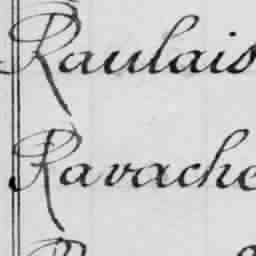 Raulais
Ravache